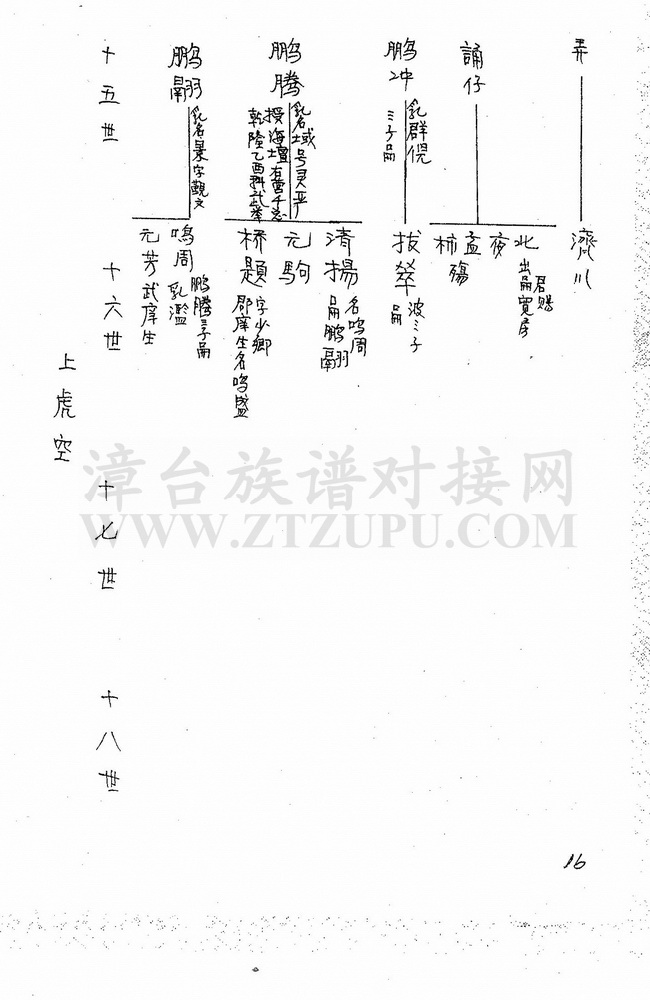 弄
濟川
誦仔
北
君賜
出嗣寬房
夜
孟殤
柿
鹏冲
乳群倪
三子嗣
拔萃
波三子
嗣
鹏腾
乳名域号灵严
授海壇右营千总
乾隆乙酉科武举
清揚
名鸣周
嗣鹏翮
元駒
桥题
字少鄉
郡庠生名鸣盛
鹏翮
乳名晨字觀文
鸣周乳濫
鹏腾三子嗣
元芳武庠生
十五世
十六世
十七世
十八世
上虎空
16
漳台族谱对接网
WWW.ZTZUPU.COM